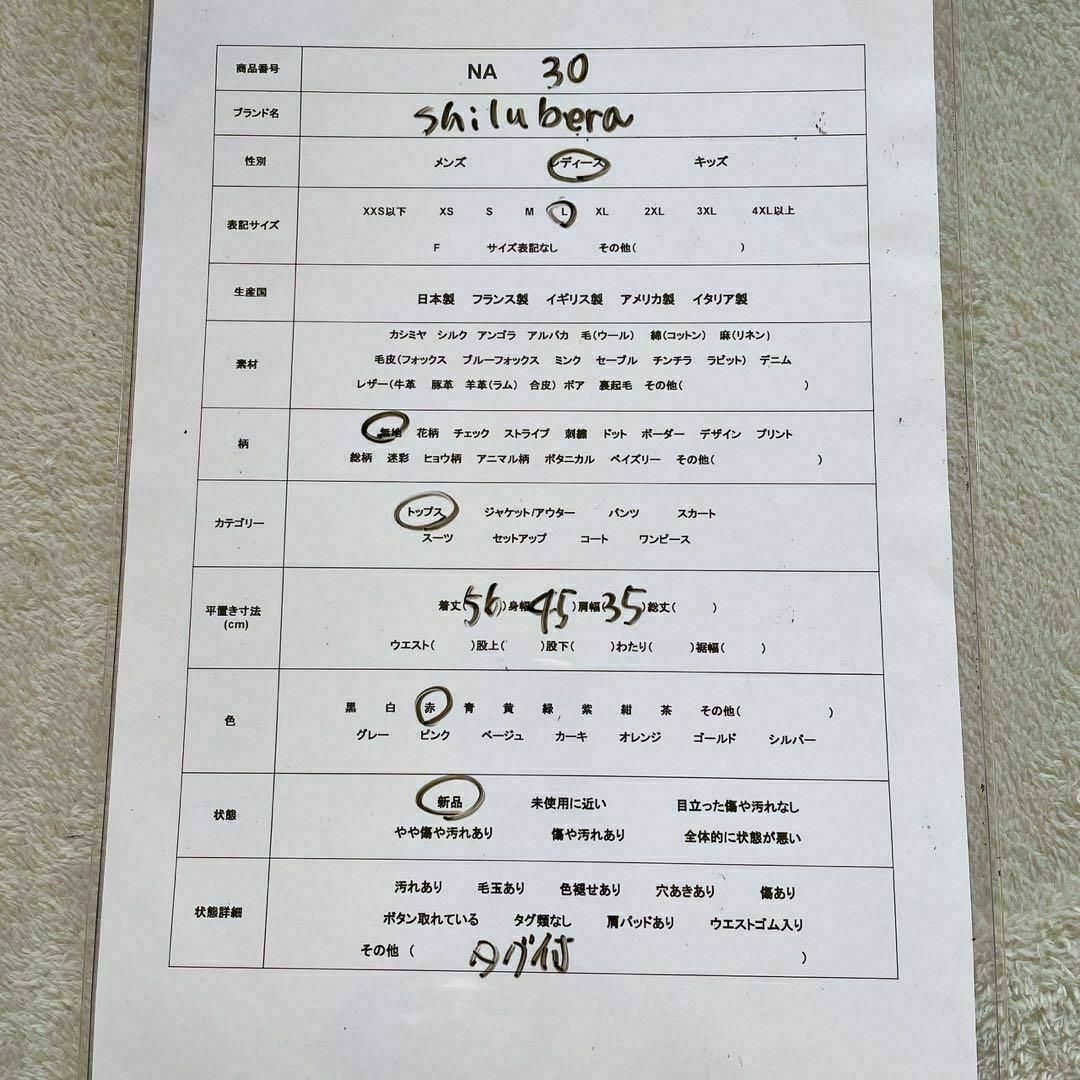 商品番号 NA 30
ブランド名 shilubera
性別 メンズ レディース キッズ
表記サイズ XXS以下 XS S M L XL 2XL 3XL 4XL以上
F サイズ表記なし その他( )
生産国 日本製 フランス製 イギリス製 アメリカ製 イタリア製
素材 カシミヤ シルク アンゴラ アルパカ 毛(ウール) 綿(コットン) 麻(リネン)
毛皮(フォックス ブルーフォックス ミンク セーブル チンチラ ラビット) デニム
レザー(牛革 豚革 羊革(ラム) 合皮) ボア 裏起毛 その他( )
柄 無地 花柄 チェック ストライプ 刺繍 ドット ボーダー デザイン プリント
総柄 迷彩 ヒョウ柄 アニマル柄 ボタニカル ペイズリー その他( )
カテゴリー トップス ジャケット/アウター パンツ スカート
スーツ セットアップ コート ワンピース
平置き寸法 (cm) 着丈(56)身幅(45)肩幅(35)総丈( )
ウエスト( )股上( )股下( )わたり( )裾幅( )
色 黒 白 赤 青 黄 緑 紫 紺 茶 その他( )
グレー ピンク ベージュ カーキ オレンジ ゴールド シルバー
状態 新品 未使用に近い 目立った傷や汚れなし
やや傷や汚れあり 傷や汚れあり 全体的に状態が悪い
状態詳細 汚れあり 毛玉あり 色褪せあり 穴あきあり 傷あり
ボタン取れている タグ類なし 肩パッドあり ウエストゴム入り
その他 ( タグ付 )